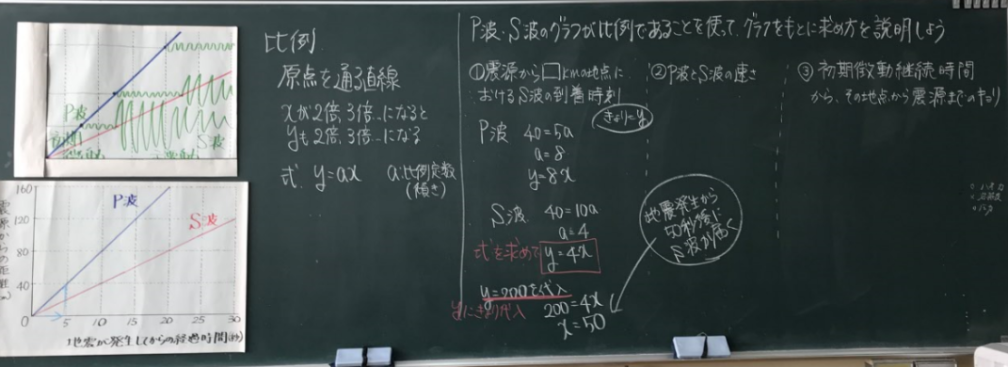 P波
S波
初期
160
120
80
40
0
P波
S波
5
10
15
20
25
30
地震が発生してからの経過時間(秒)
比例
原点を通る直線
xが2倍,3倍…になると
yも2倍,3倍…になる
式 y=ax a:比例定数
(傾き)
P波・S波のグラフが比例であることを使って、グラフをもとに求め方を説明しよう
①震源から□kmの地点に
おけるS波の到着時刻
きょり=y
P波 40=5a
a=8
y=8x
S波 40=10a
a=4
式を求めて y=4x
y=200を代入
yにきょり代入
200=4x
x=50
地震発生から
50秒後に
S波が届く
②P波とS波の速さ
③初期微動継続時間
から、その地点から震源までのキョリ